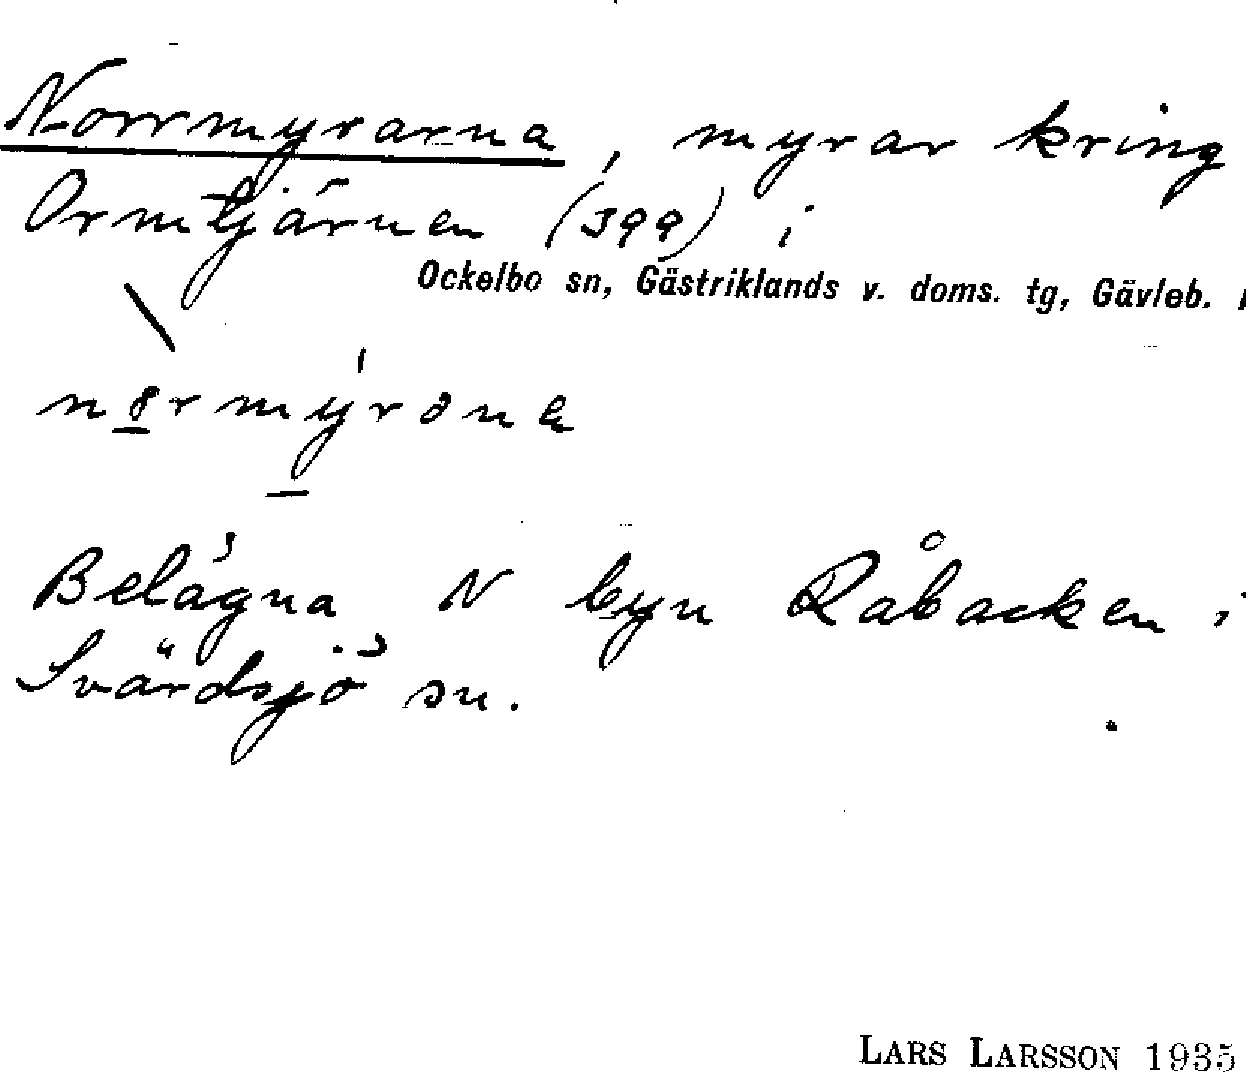 Norrmyrarna, myrar kring
Ormtjärnen (399) i
Ockelbo sn, Gästriklands v. doms. tg, Gävleb.
Belägna N byn Råbacken i
Svärdsjö sn.
LARS LARSSON 1935